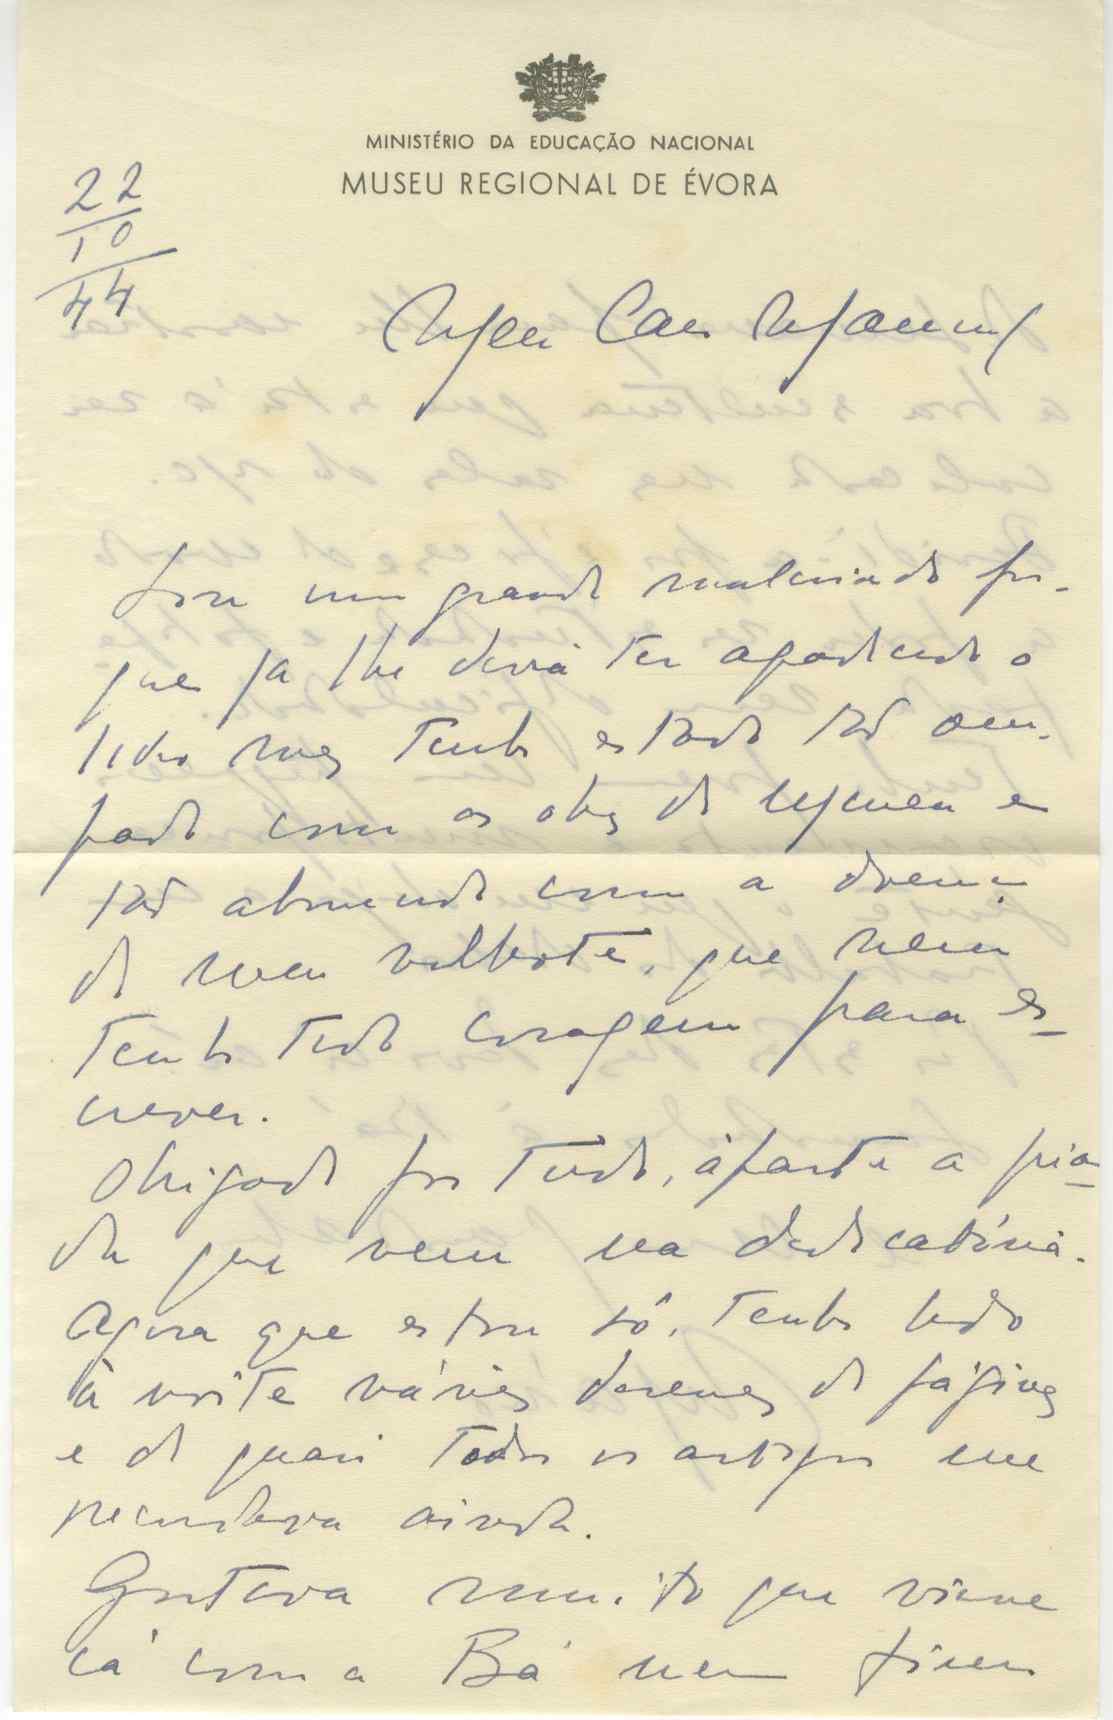 MINISTÉRIO DA EDUCAÇÃO NACIONAL
MUSEU REGIONAL DE ÉVORA
22
10
44
Meu Caro
Sou um grande malcriado por-
que já lhe devia ter agradecido o
livro mas tenho estado tão ocu-
pado com as obras do Museu e
tão aborrecido com a doença
do meu velhote, que nem
tenho tido coragem para es-
crever.
Obrigado por tudo, àparte a pia-
da que vem na dedicatória.
Agora que estou só, tenho lido
à noite várias dezenas de páginas
e de quasi todos os artigos me
recordava ainda.
Gostava muito que viesse
cá com a Bá num